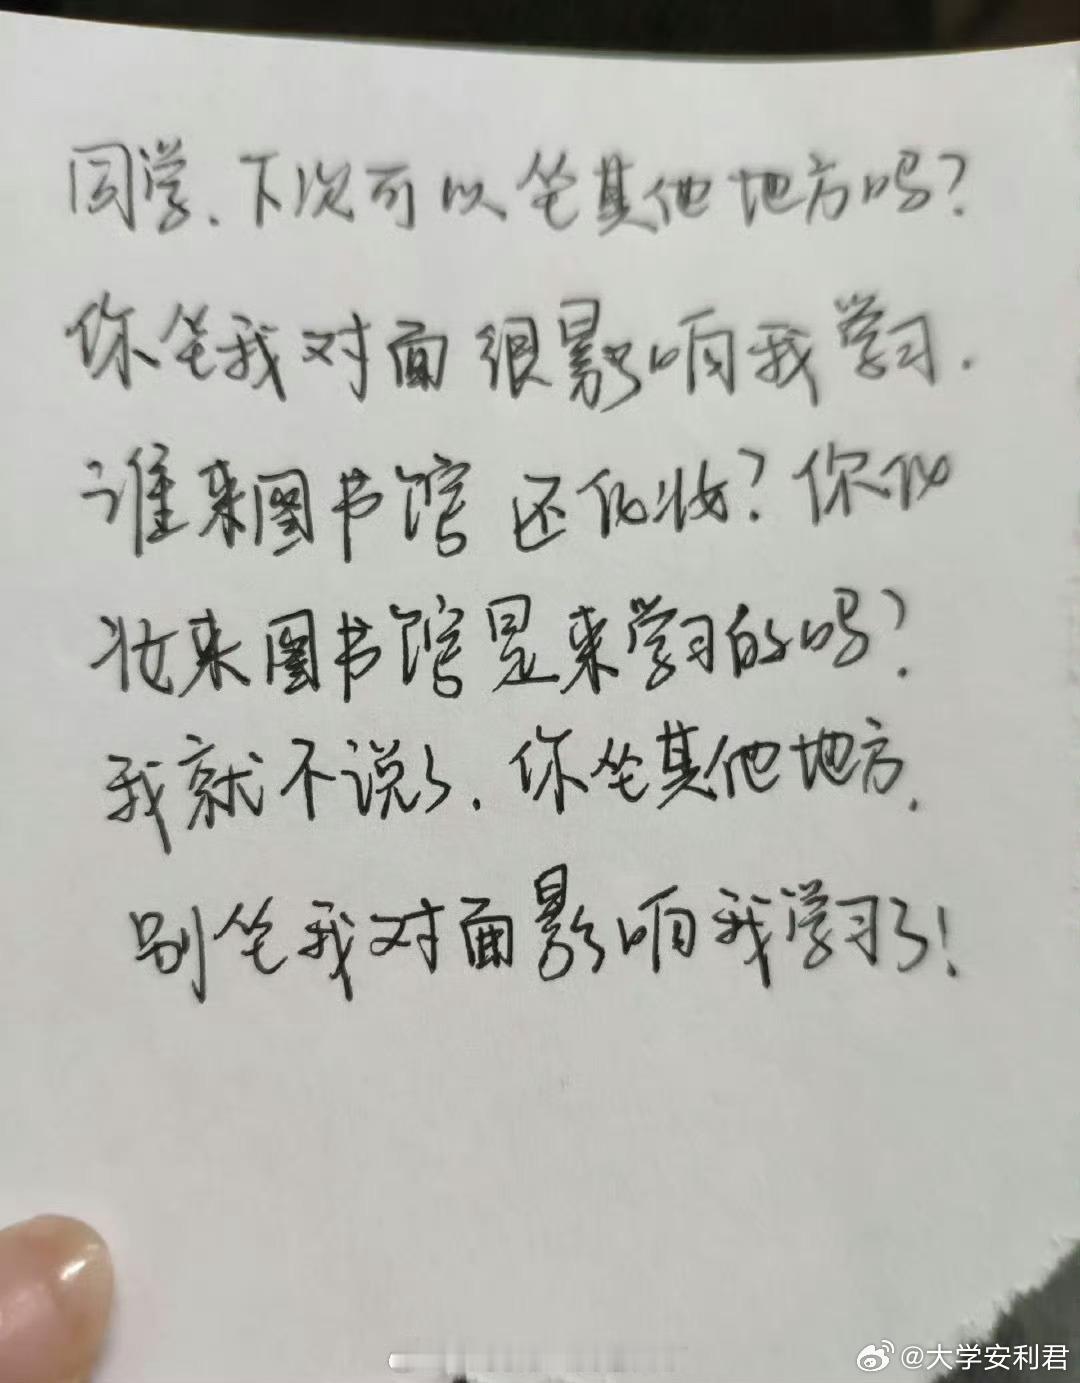 同学，下次可以坐其他地方吗？
你坐我对面很影响我学习．
谁来图书馆还化妆？你化
妆来图书馆是来学习的吗？
我就不说了，你坐其他地方，
别坐我对面影响我学习了！
@大学安利君